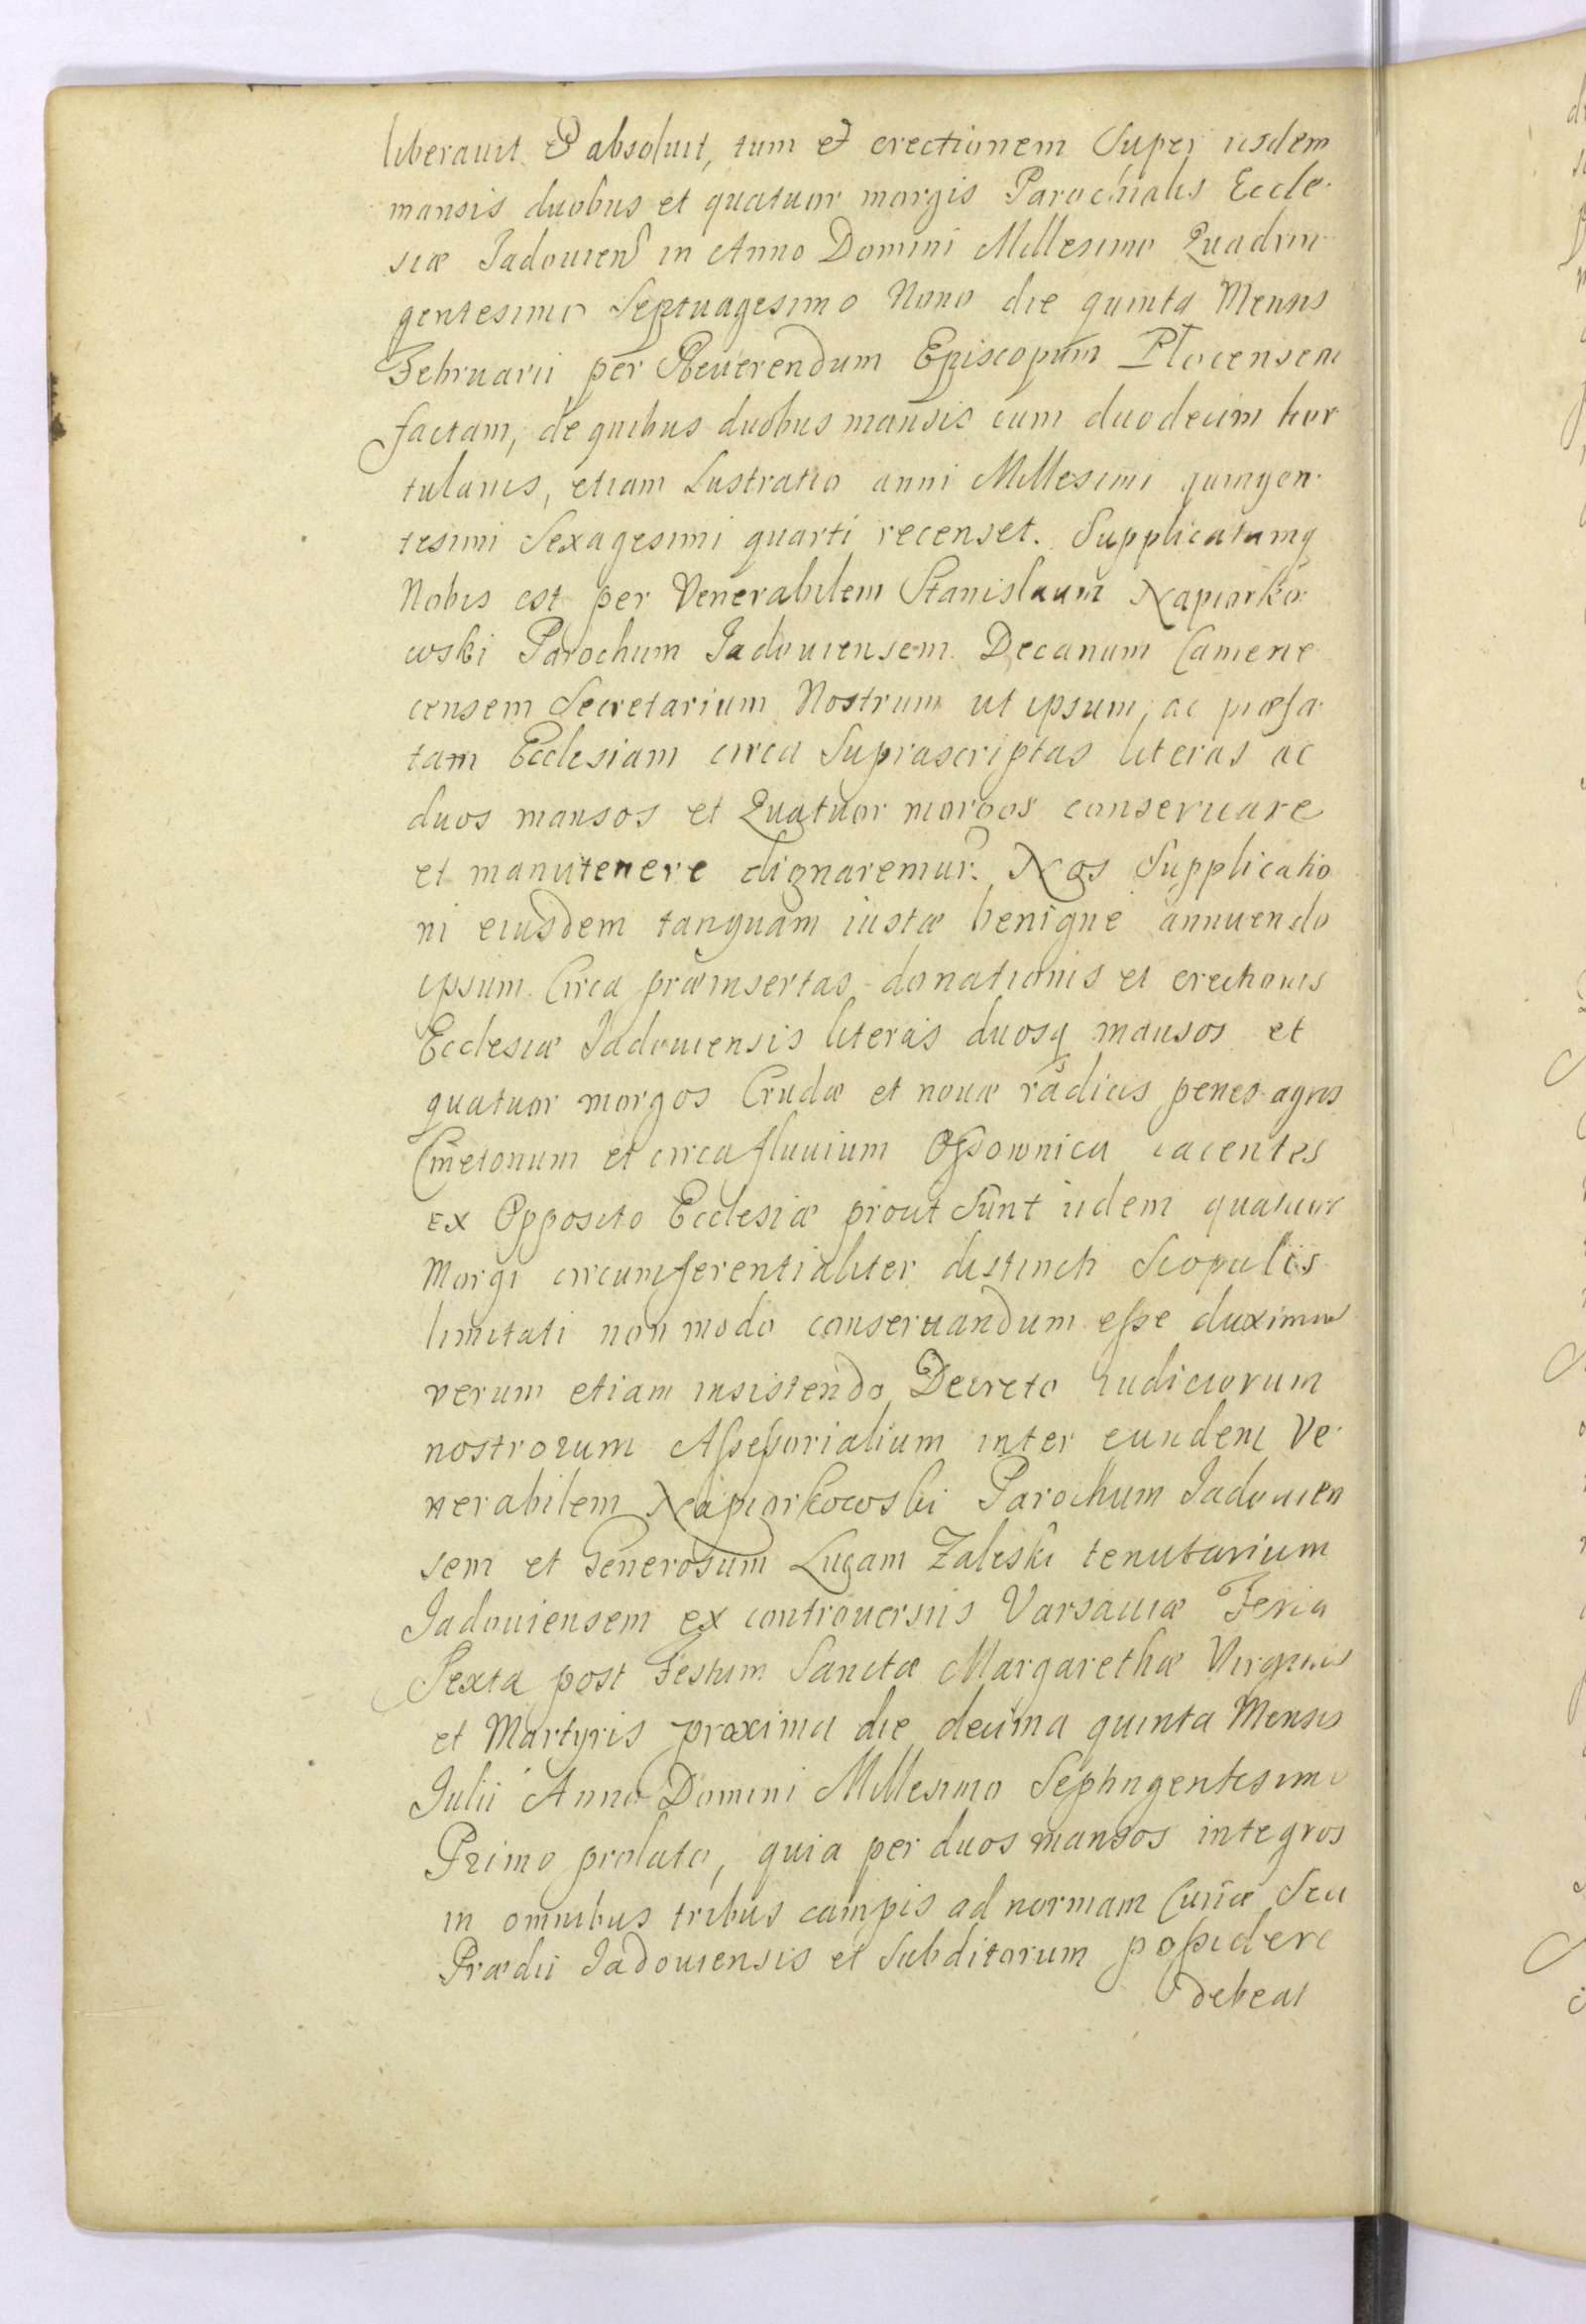 liberavit & absoluit, tum et erectionem Super iisdem
mansis duobus et quatuor morgis Parochialis Eccle-
siæ Jadouiens in Anno Domini Millesimo Quadrin-
gentesimo Septuagesimo Nono die quinta Mensis
Februarii per Reuerendum Episcopum Plocensem
factam, de quibus duobus mansis cum duodecim hor
tulanis, etiam Lustratio anni Millesimi quingen-
tesimi Sexagesimi quarti recenset. Supplicatumq
Nobis est per Venerabilem Stanislaum Napiorko-
wski Parochum Jadouiensem Decanum Camene-
censem Secretarium Nostrum ut ipsum, ac præfa-
tam Ecclesiam circa Suprascriptas literas ac
duos mansos et Quatuor morgos conseruare
et manutenere dignaremur. Nos Supplicatio
ni eiusdem tanquam iustæ benigne annuendo
ipsum Circa præinsertas donationis et erectionis
Ecclesiæ Jadouiensis literas duosq mansos et
quatuor morgos Crudæ et nouæ radicis penes agros
Cmetonum et circa fluuium Ossownica iacentes
Ex Opposito Ecclesiæ prout Sunt iidem quatuor
Morgi circumferentialiter distincti Scopulis
limitati non modo conseruandum esse duximus
verum etiam insistendo Decreto iudiciorum
nostrorum Assessorialium inter eundem Ve-
nerabilem Napiorkowski Parochum Jadouien
sem et Generosum Lucam Zaleski tenutarium
Jadouiensem ex controuersiis Varsauiæ Feria
Sexta post Festum Sanctæ Margarethæ Virginis
et Martyris proxima die decima quinta Mensis
Julii Anno Domini Millesimo Septingentesimo
Primo prolato, quia per duos mansos integros
in omnibus tribus campis ad normam Curiæ Seu
Prædii Jadouiensis et Subditorum possidere
debeat